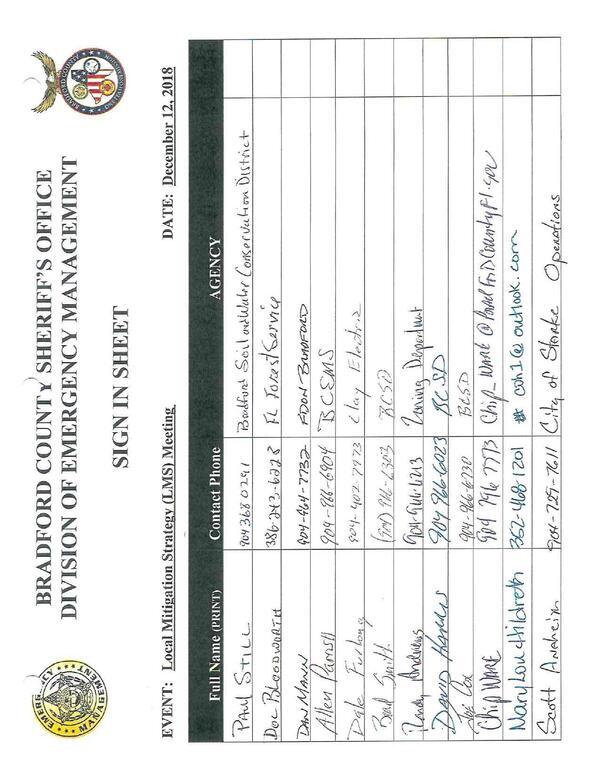 BRADFORD COUNTY SHERIFF'S OFFICE
DIVISION OF EMERGENCY MANAGEMENT
SIGN IN SHEET
EVENT: Local Mitigation Strategy (LMS) Meeting DATE: December 12, 2018
Full Name (PRINT) Contact Phone AGENCY
PAUL STILL 904 368 0291 Bradford Soil and Water Conservation District
DOC BLOODWORTH 386-243-6228 FL Forest Service
DAN MANN 904-964-7732 BRADFORD
Allen Parrish 904-966-6904 BCEMS
Dale Furlong 904-402-7973 Clay Electric
Brad Smith (904) 966-6303 BCSD
Randy Andrews 904-966-6213 Zoning Department
DAVID 904 966-6023 BCSD
Joe Cox 904-966-6230 BCSD
Chip WARE 904 796 7773 Chip_WARE@BradfordCountyFl.gov
Mary Lou Hildreth 352-468-1201 coh1@outlook.com
Scott Anaheim 904-729-7611 City of Starke Operations